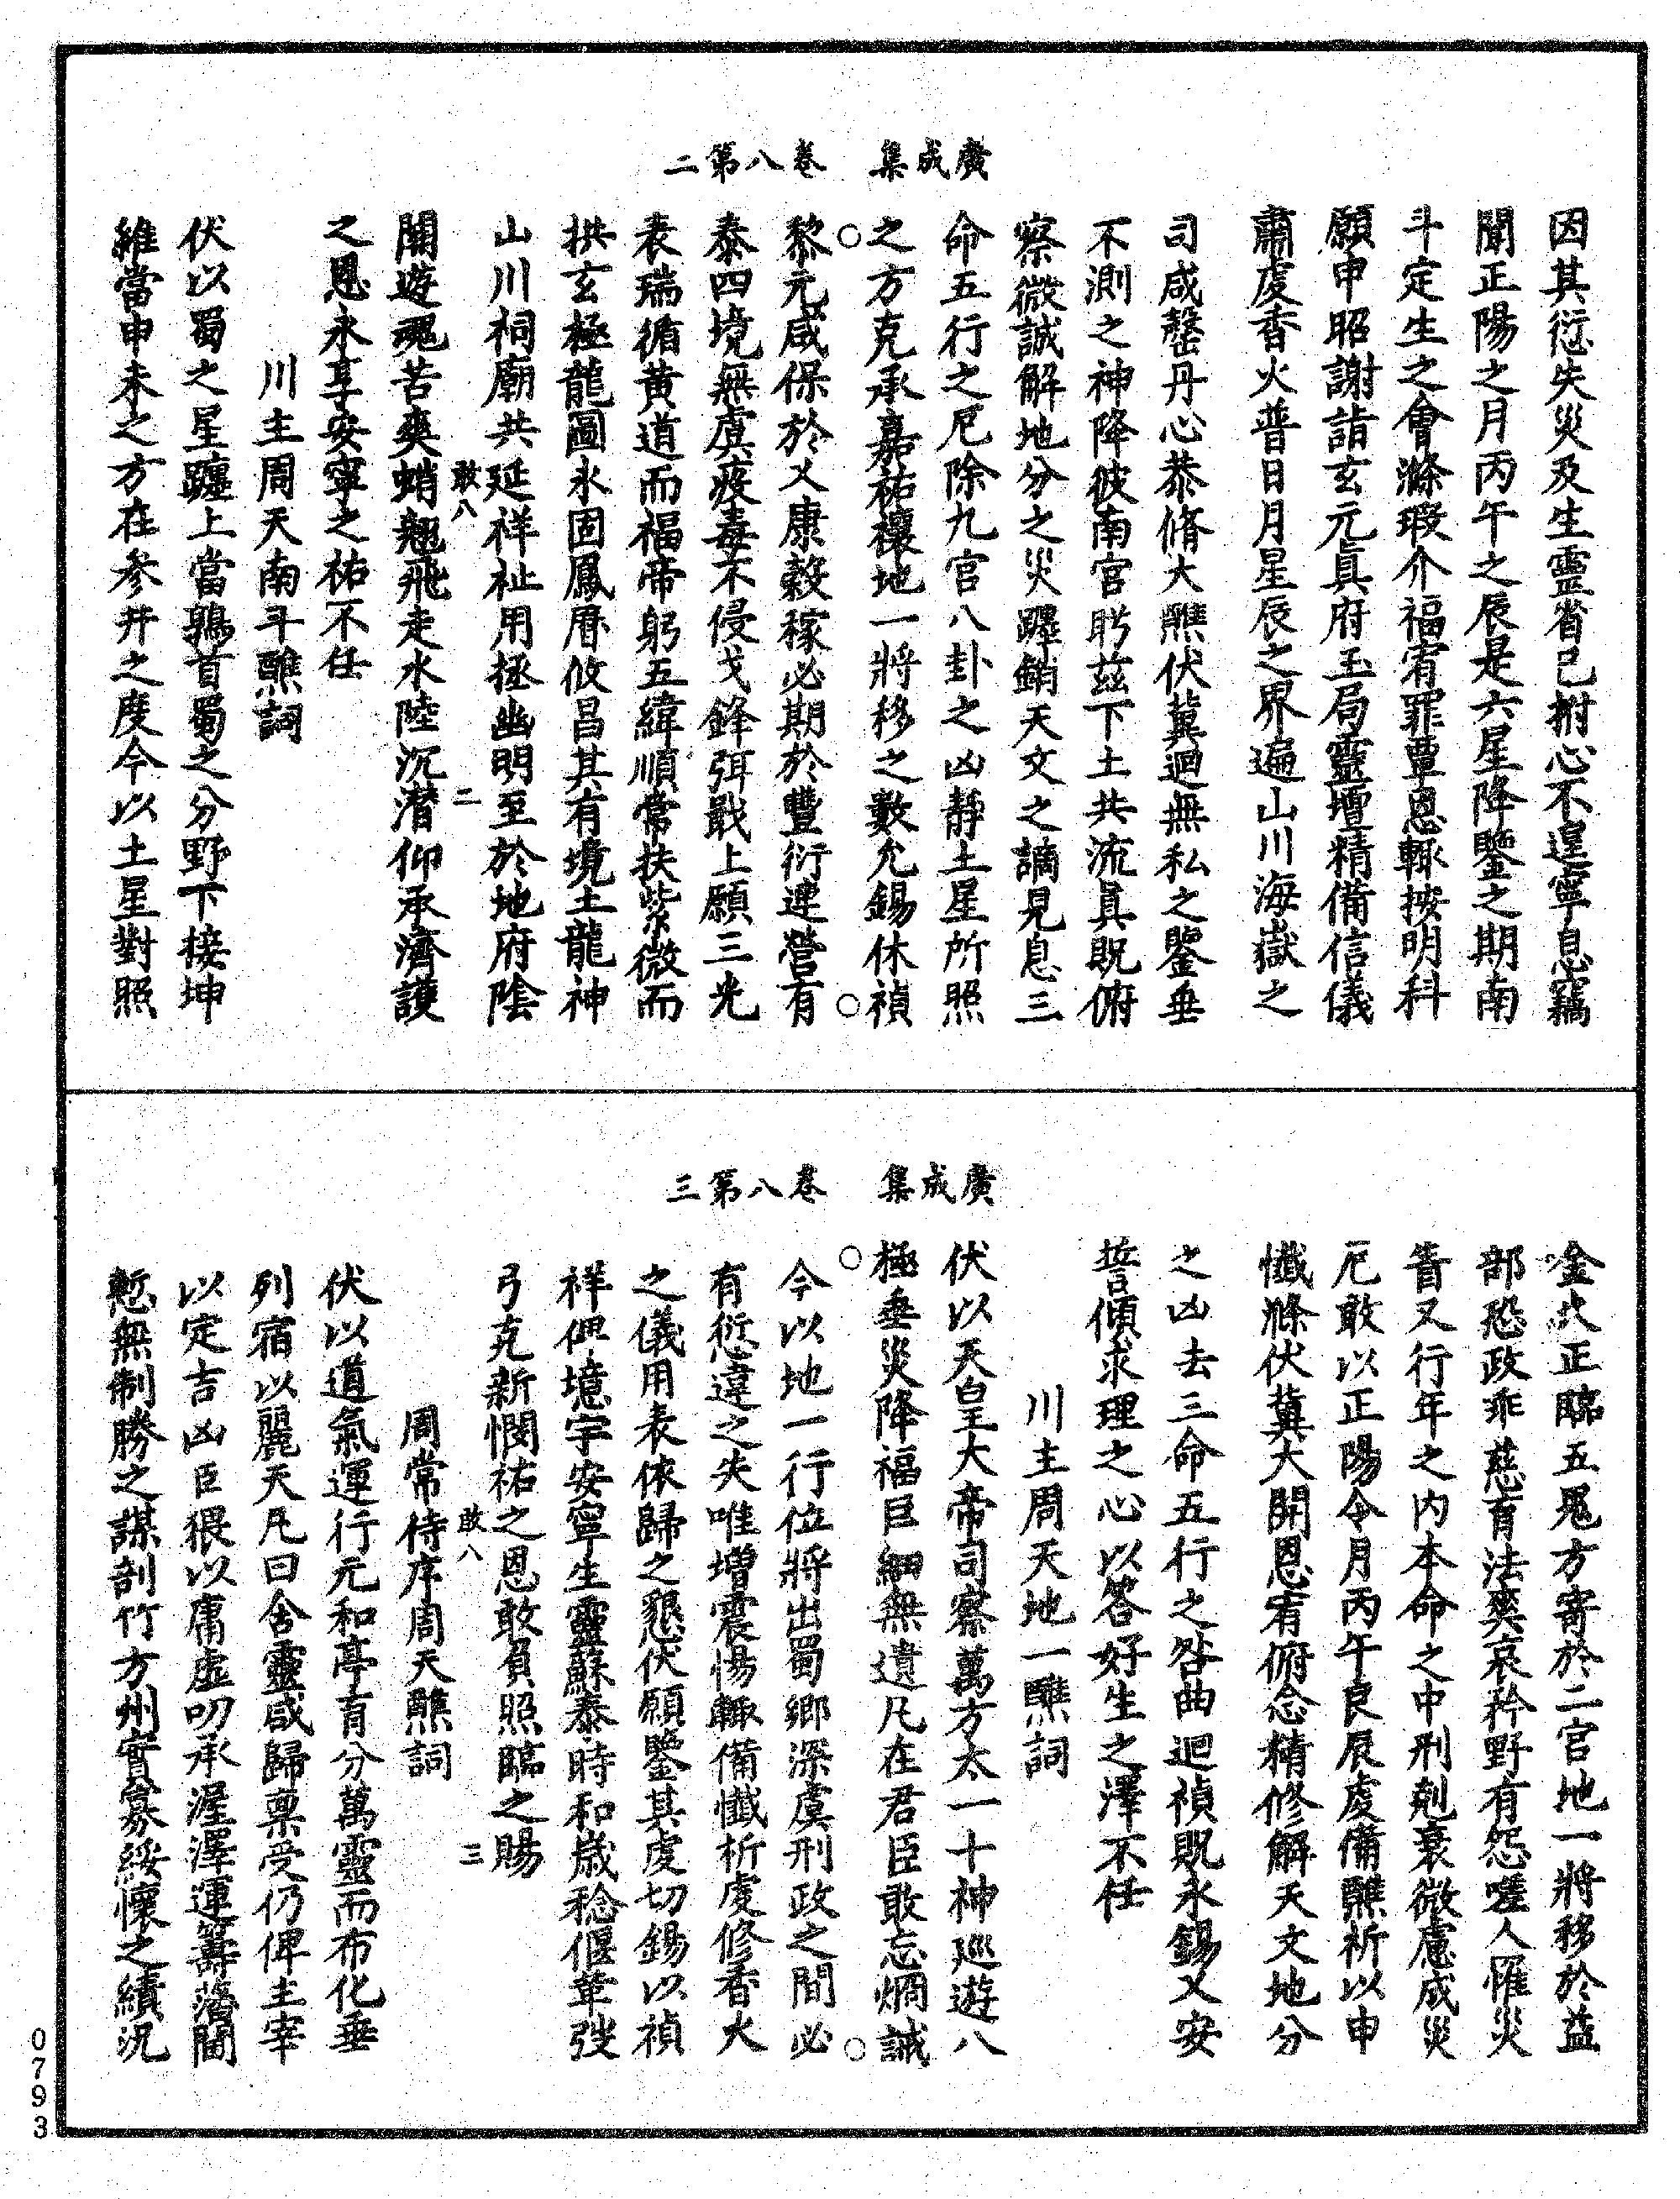 廣成集 卷八第二
因其愆失災及生靈省己拊心不遑寧息竊
聞正陽之月丙午之辰是六星降鑒之期南
斗定生之會滌瑕介福宥罪覃恩輒按明科
願申昭謝詣玄元眞府玉局靈壇精備信儀
肅虔香火普日月星辰之界遍山川海嶽之
司咸罄丹心恭脩大醮伏冀迴無私之鑒垂
不測之神降彼南宮盻兹下土共流眞貺俯
察微誠解地分之災躔銷天文之謫見息三
命五行之厄除九宮八卦之凶靜土星所照
之方克承嘉祐禳地一將移之數允錫休禎
黎元咸保於乂康穀稼必期於豐衍連營有
泰四境無虞疫毒不侵戈鋒弭戢上願三光
表瑞循黃道而福帝躬五緯順常扶紫微而
拱玄極龍圖永固鳳曆攸昌其有境土龍神
山川祠廟共延祥祉用拯幽明至於地府陰
敢八 二
關遊魂苦爽蛸翹飛走水陸沉潛仰承濟護
之恩永享安寧之祐不任
川主周天南斗醮詞
伏以蜀之星躔上當鶉首蜀之分野下接坤
維當申未之方在參井之度今以土星對照
廣成集 卷八第三
金火正臨五鬼方寄於二宮地一將移於益
部恐政乖慈育法爽哀矜野有怨嗟人罹災
眚又行年之內本命之中刑剋衰微慮成災
厄敢以正陽令月丙午良辰虔備醮祈以申
懺滌伏冀大開恩宥俯念精修解天文地分
之凶去三命五行之咎曲迴禎貺永錫乂安
誓傾求理之心以答好生之澤不任
川主周天地一醮詞
伏以天皇大帝司察萬方太一十神巡遊八
極垂災降福巨細無遺凡在君臣敢忘烱誡
今以地一行位將出蜀鄉深虞刑政之間必
有愆違之失唯增震惕輒備懺祈虔修香火
之儀用表依歸之懇伏願鑒其虔切錫以禎
祥俾境宇安寧生靈蘇泰時和歲稔偃革弢
弓克新憫祐之恩敢負照臨之賜
敢八 三
周常侍序周天醮詞
伏以道氣運行元和亭育分萬靈而布化垂
列宿以麗天凡曰含靈咸歸稟受仍俾主宰
以定吉凶臣猥以庸虛叨承渥澤運籌藩閫
慙無制勝之謀剖竹方州實寡綏懷之績況
0793